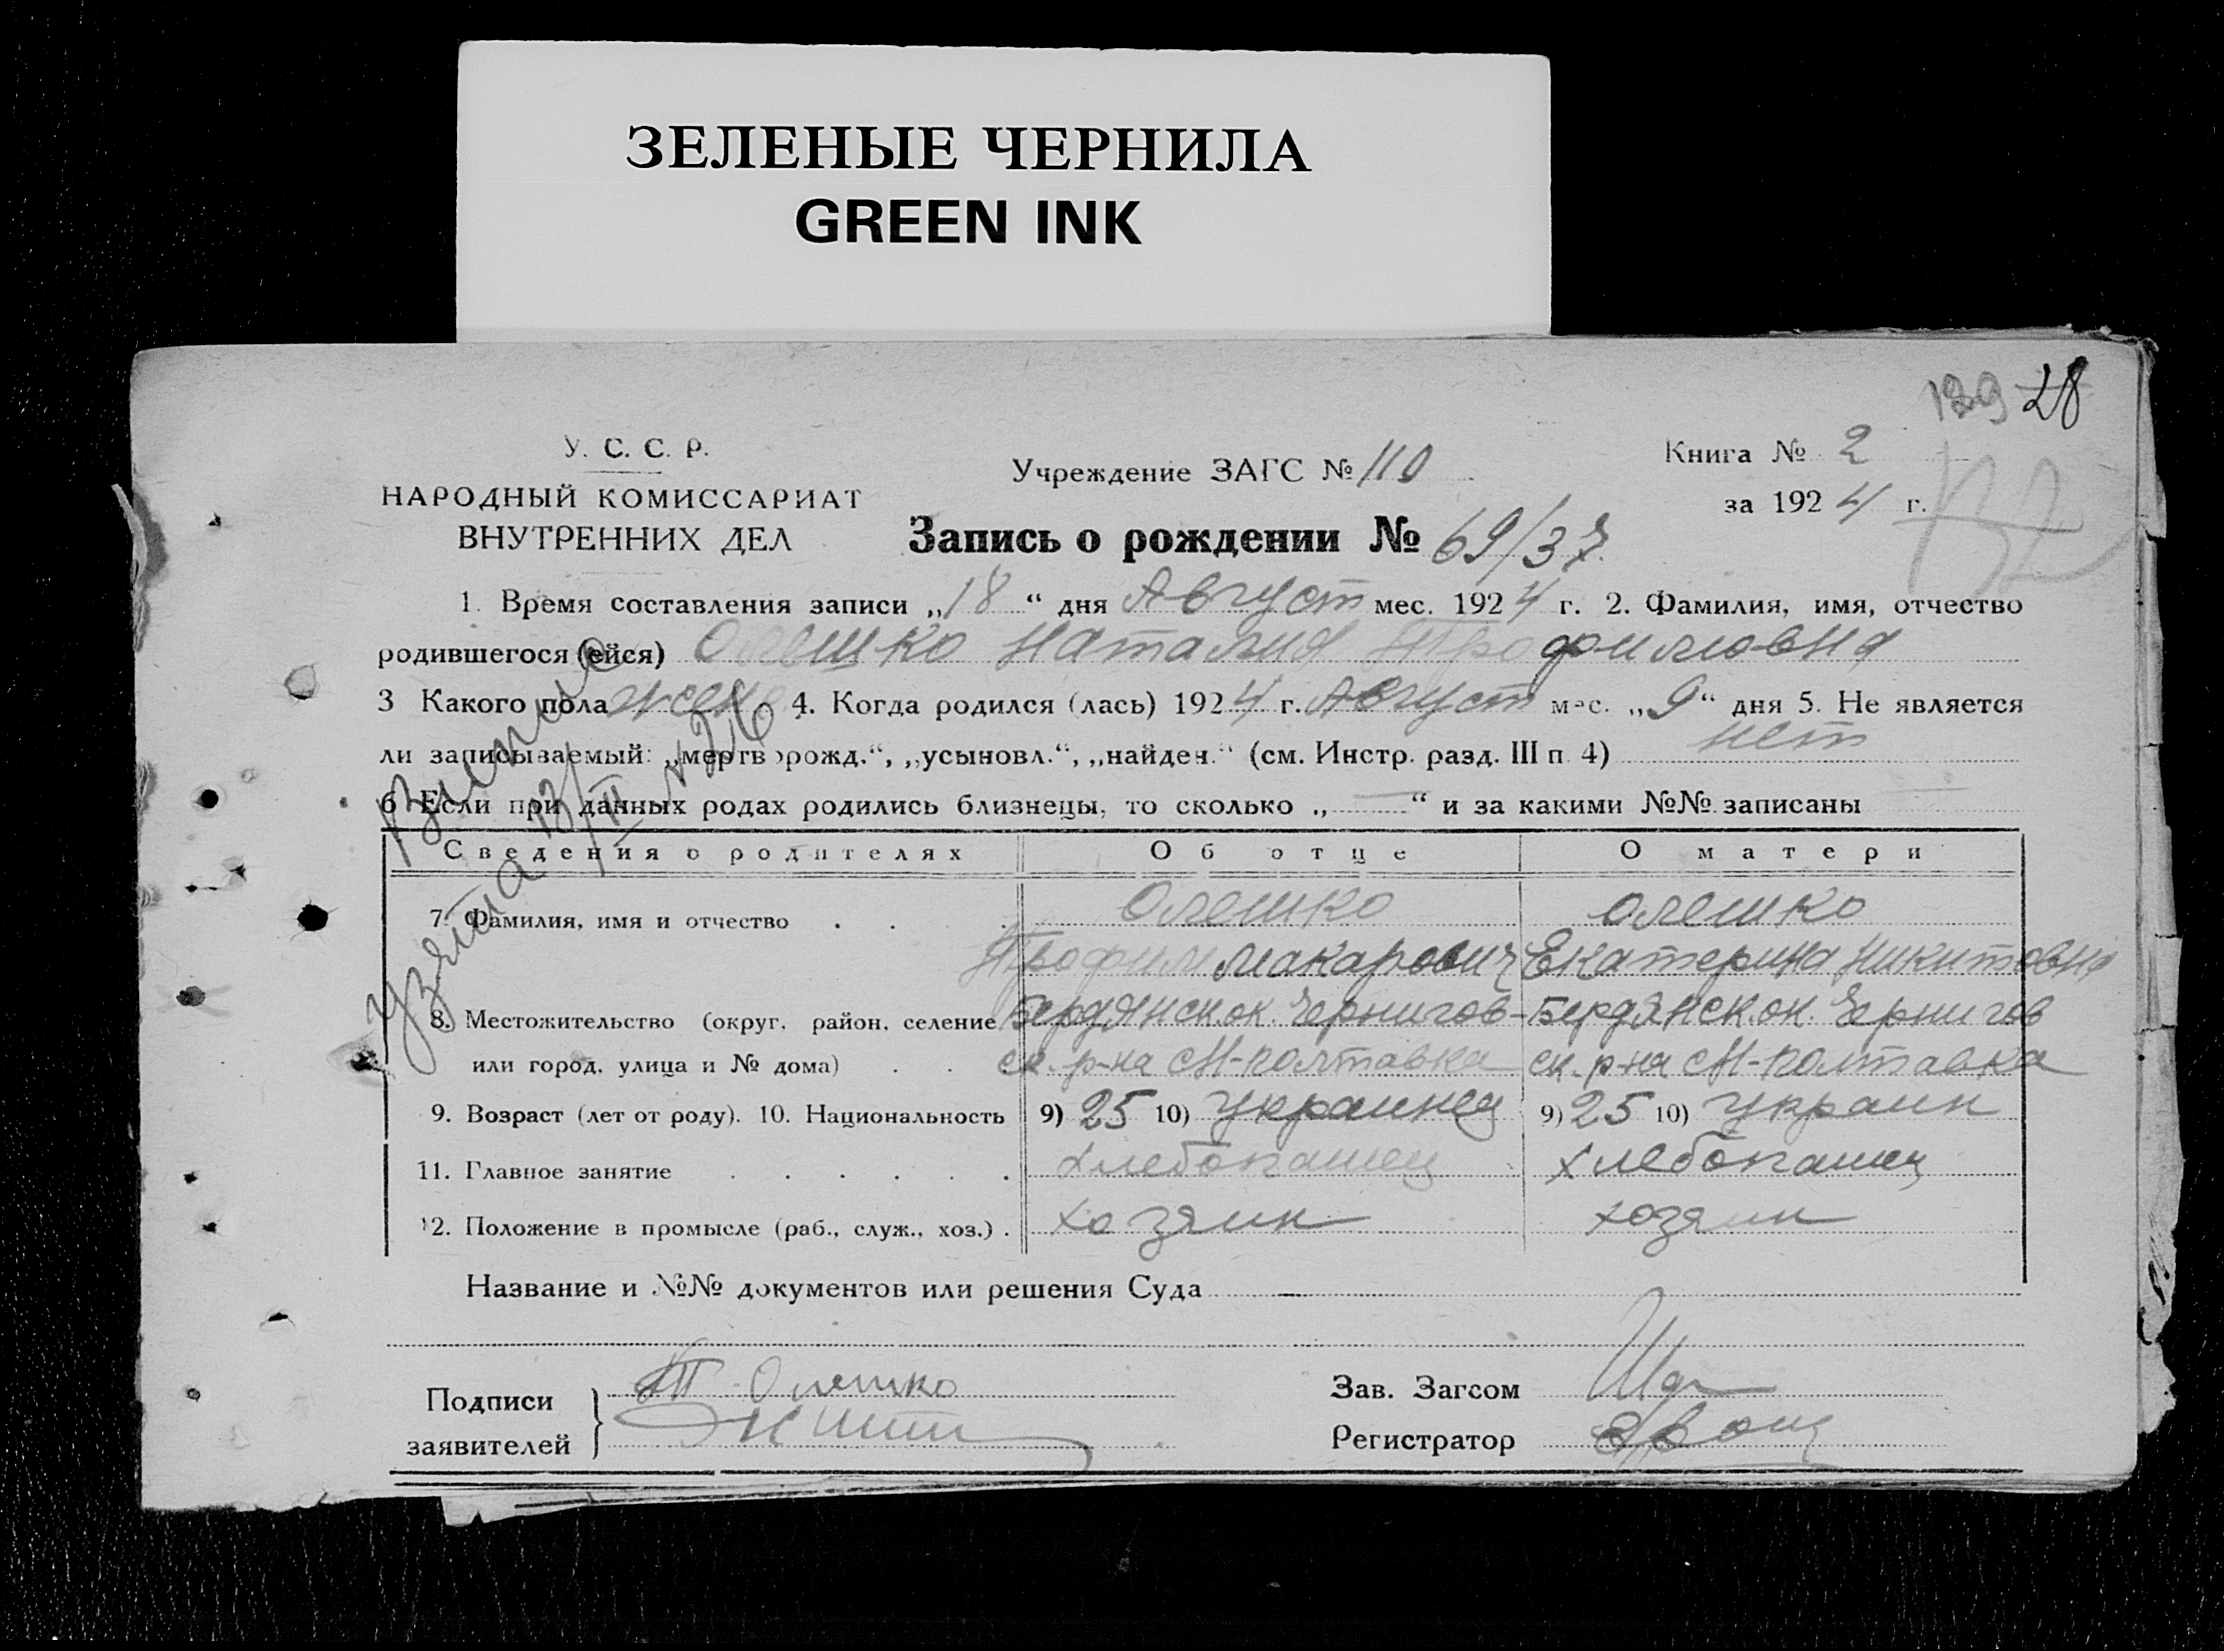 ЗЕЛЕНЫЕ ЧЕРНИЛА
GREEN INK
129 28
У. С. С. Р.
НАРОДНЫЙ КОМИССАРИАТ
ВНУТРЕННИХ ДЕЛ
Учреждение ЗАГС № 110
Книга № 2
за 1924 г.
Запись о рождении № 69/37
1. Время составления записи „18“ дня Август мес. 1924 г. 2. Фамилия, имя, отчество
родившегося (ейся) Олешко Наталия Трофимовна
3 Какого пола жен 4. Когда родился (лась) 1924 г. Август мес. „9“ дня 5. Не является
ли записываемый: „мертворожд.“, „усыновл.“, „найден.“ (см. Инстр. разд. III п. 4) нет
6 Если при данных родах родились близнецы, то сколько „—“ и за какими №№ записаны
Сведения о родителях Об отце О матери
7. Фамилия, имя и отчество Олешко Олешко
Трофим Макарович Екатерина Никитовна
8. Местожительство (округ, район, селение Бердянск ок. Чернигов- Бердянск. ок. Чернигов
или город, улица и № дома) ск. р-на М-Полтавка ск. р-на М-Полтавка
9. Возраст (лет от роду). 10. Национальность 9) 25 10) Украинец 9) 25 10) Украин
11. Главное занятие хлебопашец хлебопашец
12. Положение в промысле (раб., служ., хоз.) хозяин хозяин
Название и №№ документов или решения Суда
Подписи
заявителей
Т Олешко
Зав. Загсом
Регистратор
узята 13/III